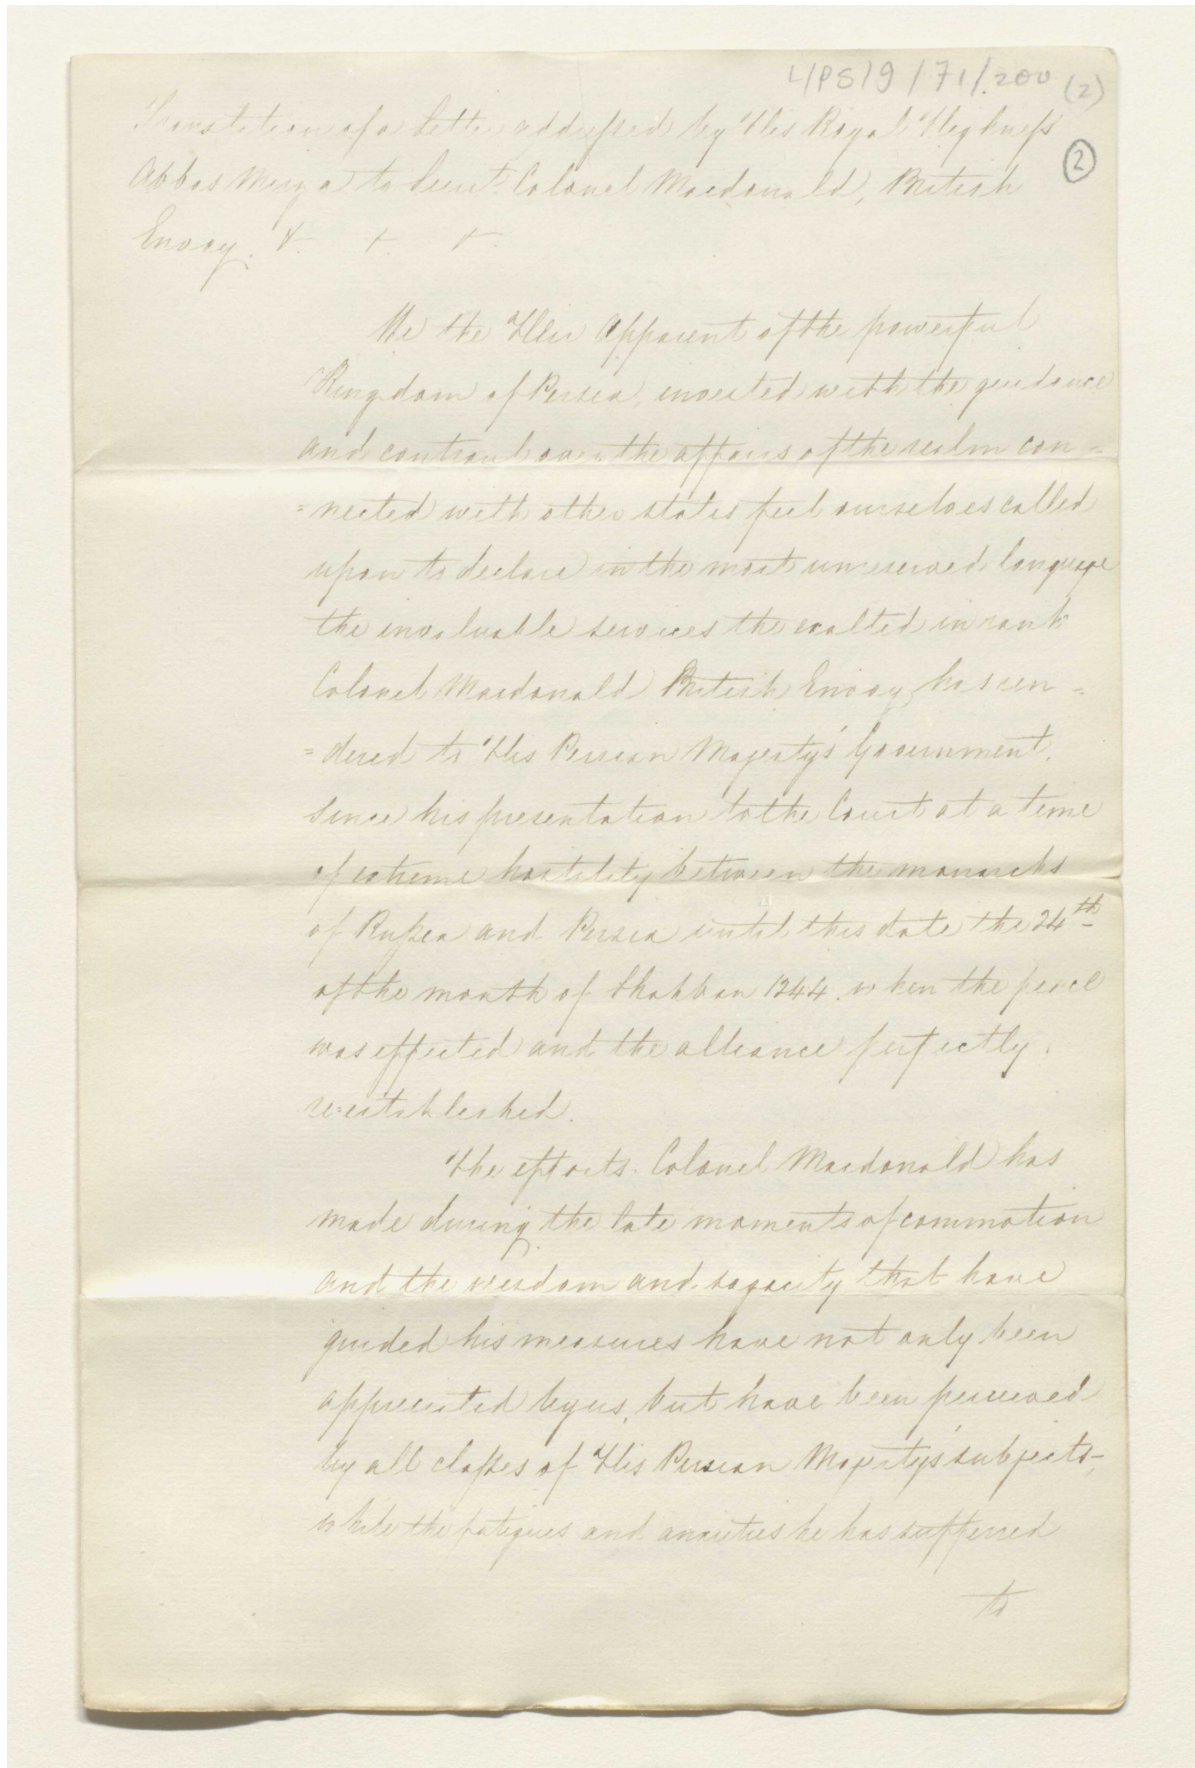 L/PS/9/71/.200 (2)
Translation of a Letter addressed by His Royal Highness
2
Abbas Mirza to Lieut. Colonel Macdonald, British
Envoy. &. &. &.
We the Heir Apparent of the powerful
Kingdom of Persia, invested with the guidance
and controul over the affairs of the realm con=
=nected with other states feel ourselves called
upon to declare in the most unreserved language
the invaluable services the exalted in rank
Colonel Macdonald British Envoy, has ren=
=dered to His Persian Majesty's Government.
Since his presentation to the Court at a time
of extreme hostility between the monarchs
of Russia and Persia until this date the 24th
of the month of Shabban 1244. when the peace
was effected and the alliance perfectly
re-established.
The efforts Colonel Macdonald has
made during the late moments of commotion
and the wisdom and sagacity that have
guided his measures have not only been
appreciated by us, but have been perceived
by all classes of His Persian Majesty's subjects-,
while the fatigues and anxieties he has suffered
to